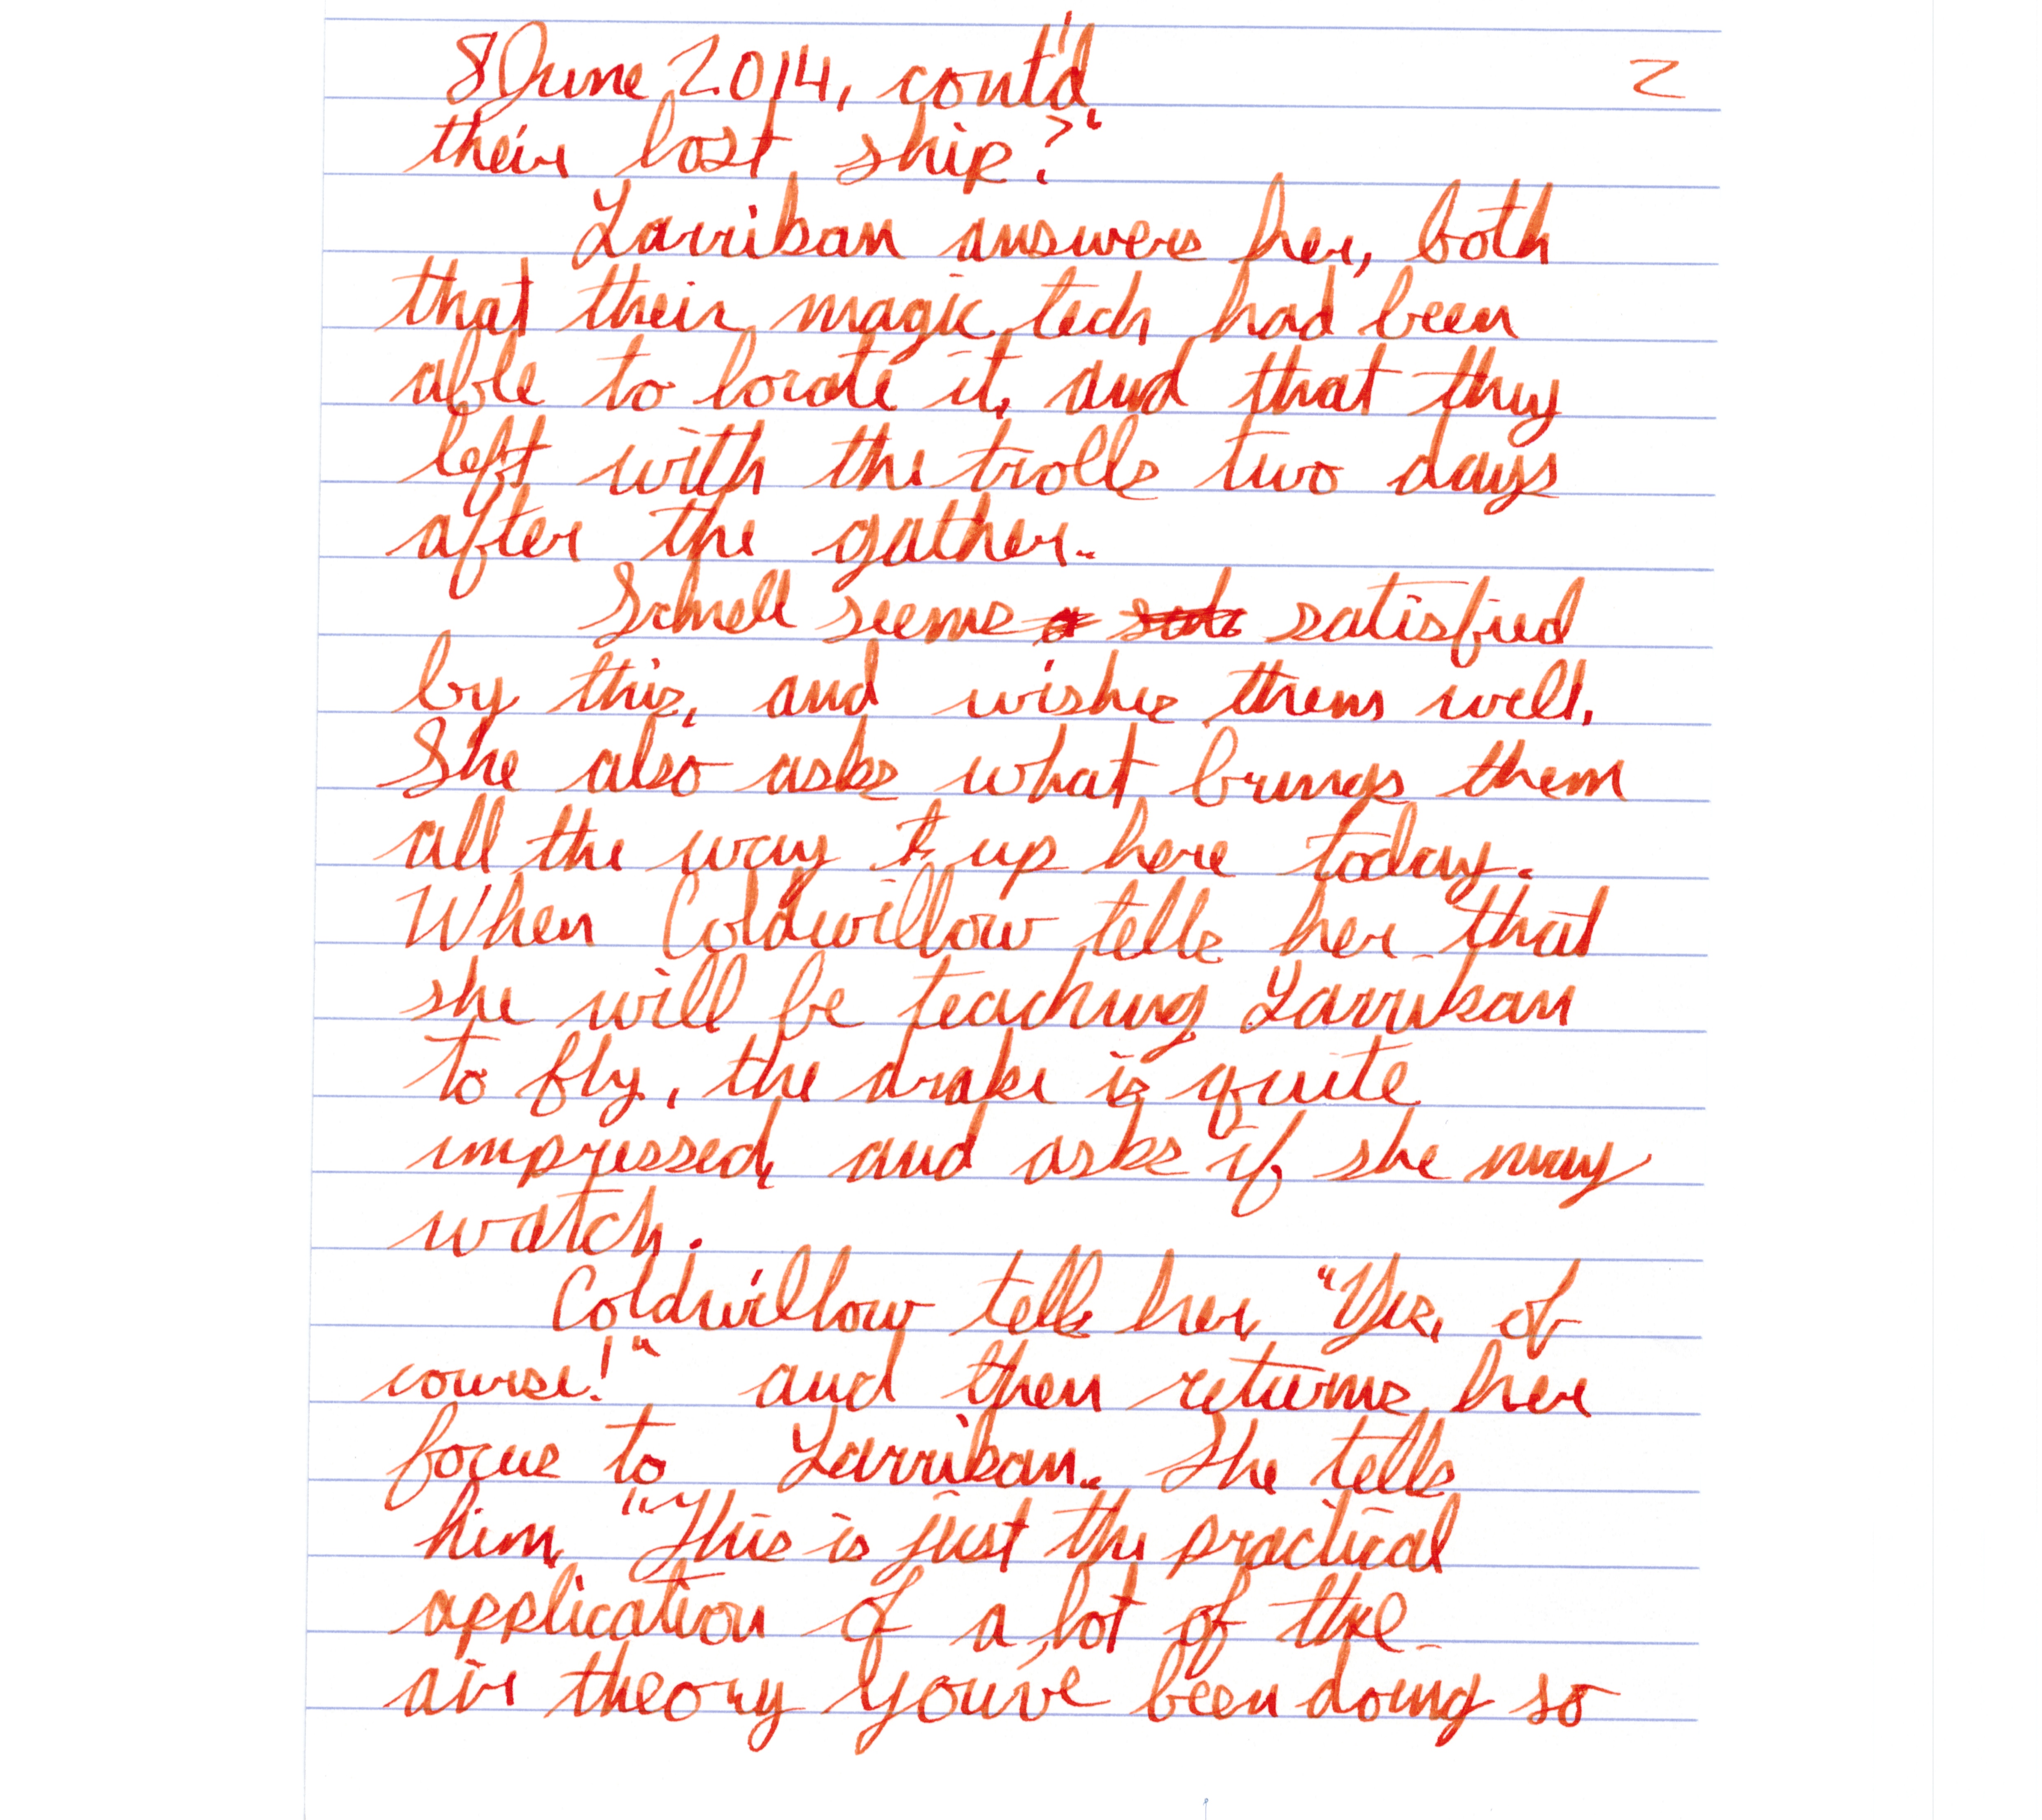 8 June 2014, cont'd 2
their lost ship?"
Larrikan answers her, both
that their magic tech had been
able to locate it, and that they
left with the trolls two days
after the gather.
Schnell seems satisfied
by this, and wishes them well.
She also asks what brings them
all the way up here today.
When Coldwillow tells her that
she will be teaching Larrikan
to fly, the drake is quite
impressed, and asks if she may
watch.
Coldwillow tells her, "Yes, of
course!" and then returns her
focus to Larrikan. She tells
him, "This is just the practical
application of a lot of the
air theory you've been doing so